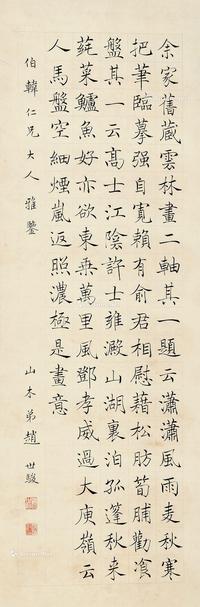 余家舊藏雲林畫二軸其一題云瀟瀟風雨麦秋寒
把筆臨摹强自寬賴有俞君相慰藉松肪筍脯勸飡
盤其一云髙士江陰許士雍澱山湖裏泊孤篷秋来
蒓菜鱸魚好亦欲東乗萬里風鄧孝威過大庾嶺云
人馬盤空細煙嵐返照濃極是畫意
伯韓仁兄大人雅鑒
山木弟趙世駿